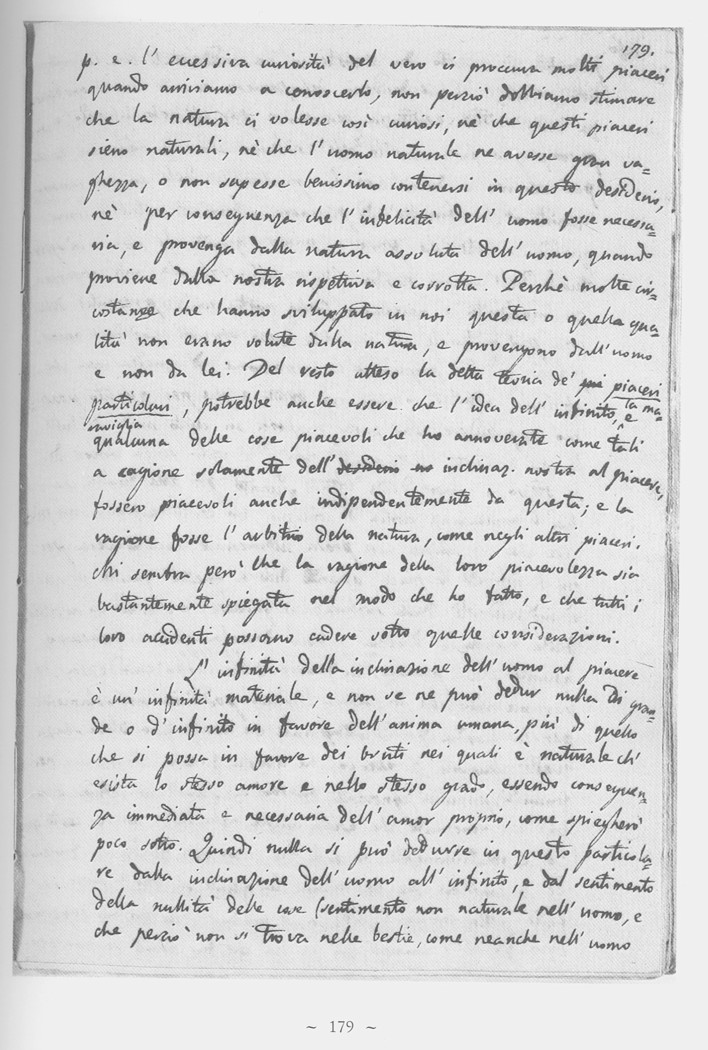 179.
p. e. l'eccessiva curiosità del vero ci proccura molti piaceri
quando arriviamo a conoscerlo, non perciò dobbiamo stimare
che la natura ci volesse così curiosi, nè che questi piaceri
sieno naturali, nè che l'uomo naturale ne avesse gran va=
ghezza, o non sapesse benissimo contenersi in questo desiderio,
nè per conseguenza che l'infelicità dell'uomo fosse necessa=
ria, e provenga dalla natura assoluta dell'uomo, quando
proviene dalla nostra rispettiva e corrotta. Perchè molte cir=
costanze che hanno sviluppato in noi questa o quella qua=
lità non erano volute dalla natura, e provengono dall'uomo
e non da lei. Del resto atteso la detta teoria de' piaceri
particolari, potrebbe anche essere che l'idea dell'infinito, la ma=
raviglia e
qualcuna delle cose piacevoli che ho annoverate come tali
a cagione solamente dell'desiderio inclinaz. nostra al piacere,
fossero piacevoli anche indipendentemente da questa; e la
ragione fosse l'arbitrio della natura, come negli altri piaceri.
Mi sembra però che la ragione della loro piacevolezza sia
bastantemente spiegata nel modo che ho fatto, e che tutti i
loro accidenti possano cadere sotto quelle considerazioni.
L'infinità della inclinazione dell'uomo al piacere
è un'infinità materiale, e non se ne può dedur nulla di gran=
de o d'infinito in favore dell'anima umana, più di quello
che si possa in favore dei bruti nei quali è naturale ch'
esista lo stesso amore e nello stesso grado, essendo conseguen=
za immediata e necessaria dell'amor proprio, come spiegherò
poco sotto. Quindi nulla si può dedurre in questo particola=
re dalla inclinazione dell'uomo all'infinito, e dal sentimento
della nullità delle cose (sentimento non naturale nell'uomo, e
che perciò non si trova nelle bestie, come neanche nell'uomo
~ 179 ~